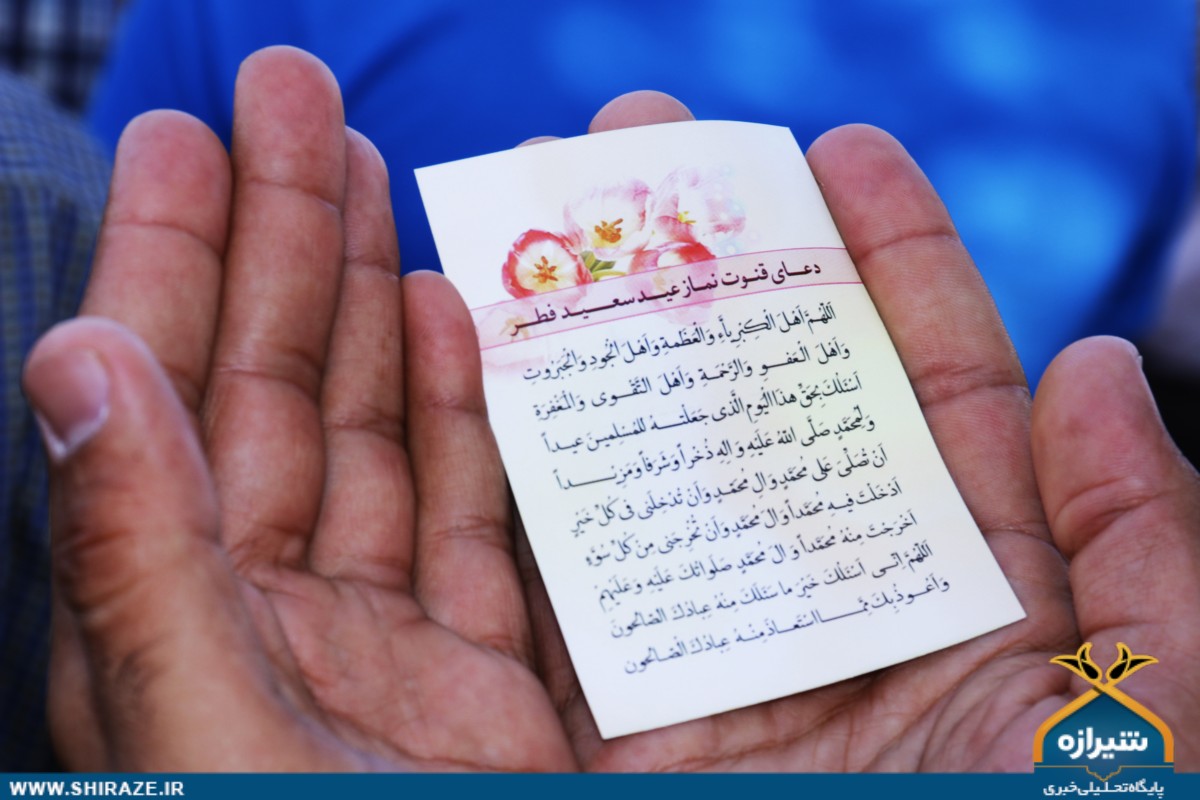 دعای قنوت نماز عید سعید فطر
اَللّهُمَّ اَهْلَ الْكِبْرِیآَّءِ وَالْعَظَمَةِ وَاَهْلَ الْجُودِ وَالْجَبَرُوتِ
وَاَهْلَ الْعَفْوِ وَالرَّحْمَةِ وَاَهْلَ التَّقْوى وَالْمَغْفِرَةِ
اَسْئَلُكَ بِحَقِّ هذَا الْیَومِ الَّذى جَعَلْتَهُ لِلْمُسْلِمینَ عیداً
وَلِمُحَمَّدٍ صَلَّى اللهُ عَلَیْهِ وَ الِهِ ذُخْراً وَشَرَفاً وَمَزیداً
اَنْ تُصَلِّىَ عَلى مُحَمَّدٍ وَ الِ مُحَمَّدٍ وَاَنْ تُدْخِلَنى فى كُلِّ خَیْرٍ
اَدْخَلْتَ فیهِ مُحَمَّداً وَ الَ مُحَمَّدٍ وَاَنْ تُخْرِجَنى مِنْ كُلِّ سُوَّءٍ
اَخْرَجْتَ مِنْهُ مُحَمَّداً وَ الَ مُحَمَّدٍ صَلَواتُكَ عَلَیْهِ وَعَلَیْهِمْ
اَللّهُمَّ اِنّى اَسْئَلُكَ خَیْرَ ما سَئَلَكَ مِنْهُ عِبادُكَ الصّالِحُونَ
وَاَعُوذُ بِكَ مِمَّا اسْتَعاذَ مِنْهُ عِبادُكَ الْصّالِحُونَ
شیرازه
پایگاه تحلیلی خبری
WWW.SHIRAZE.IR